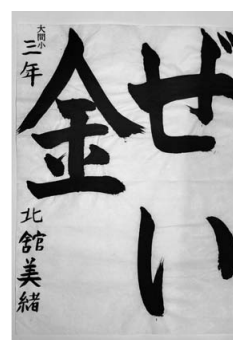 ぜい
金
大間小
三年 北舘美緒